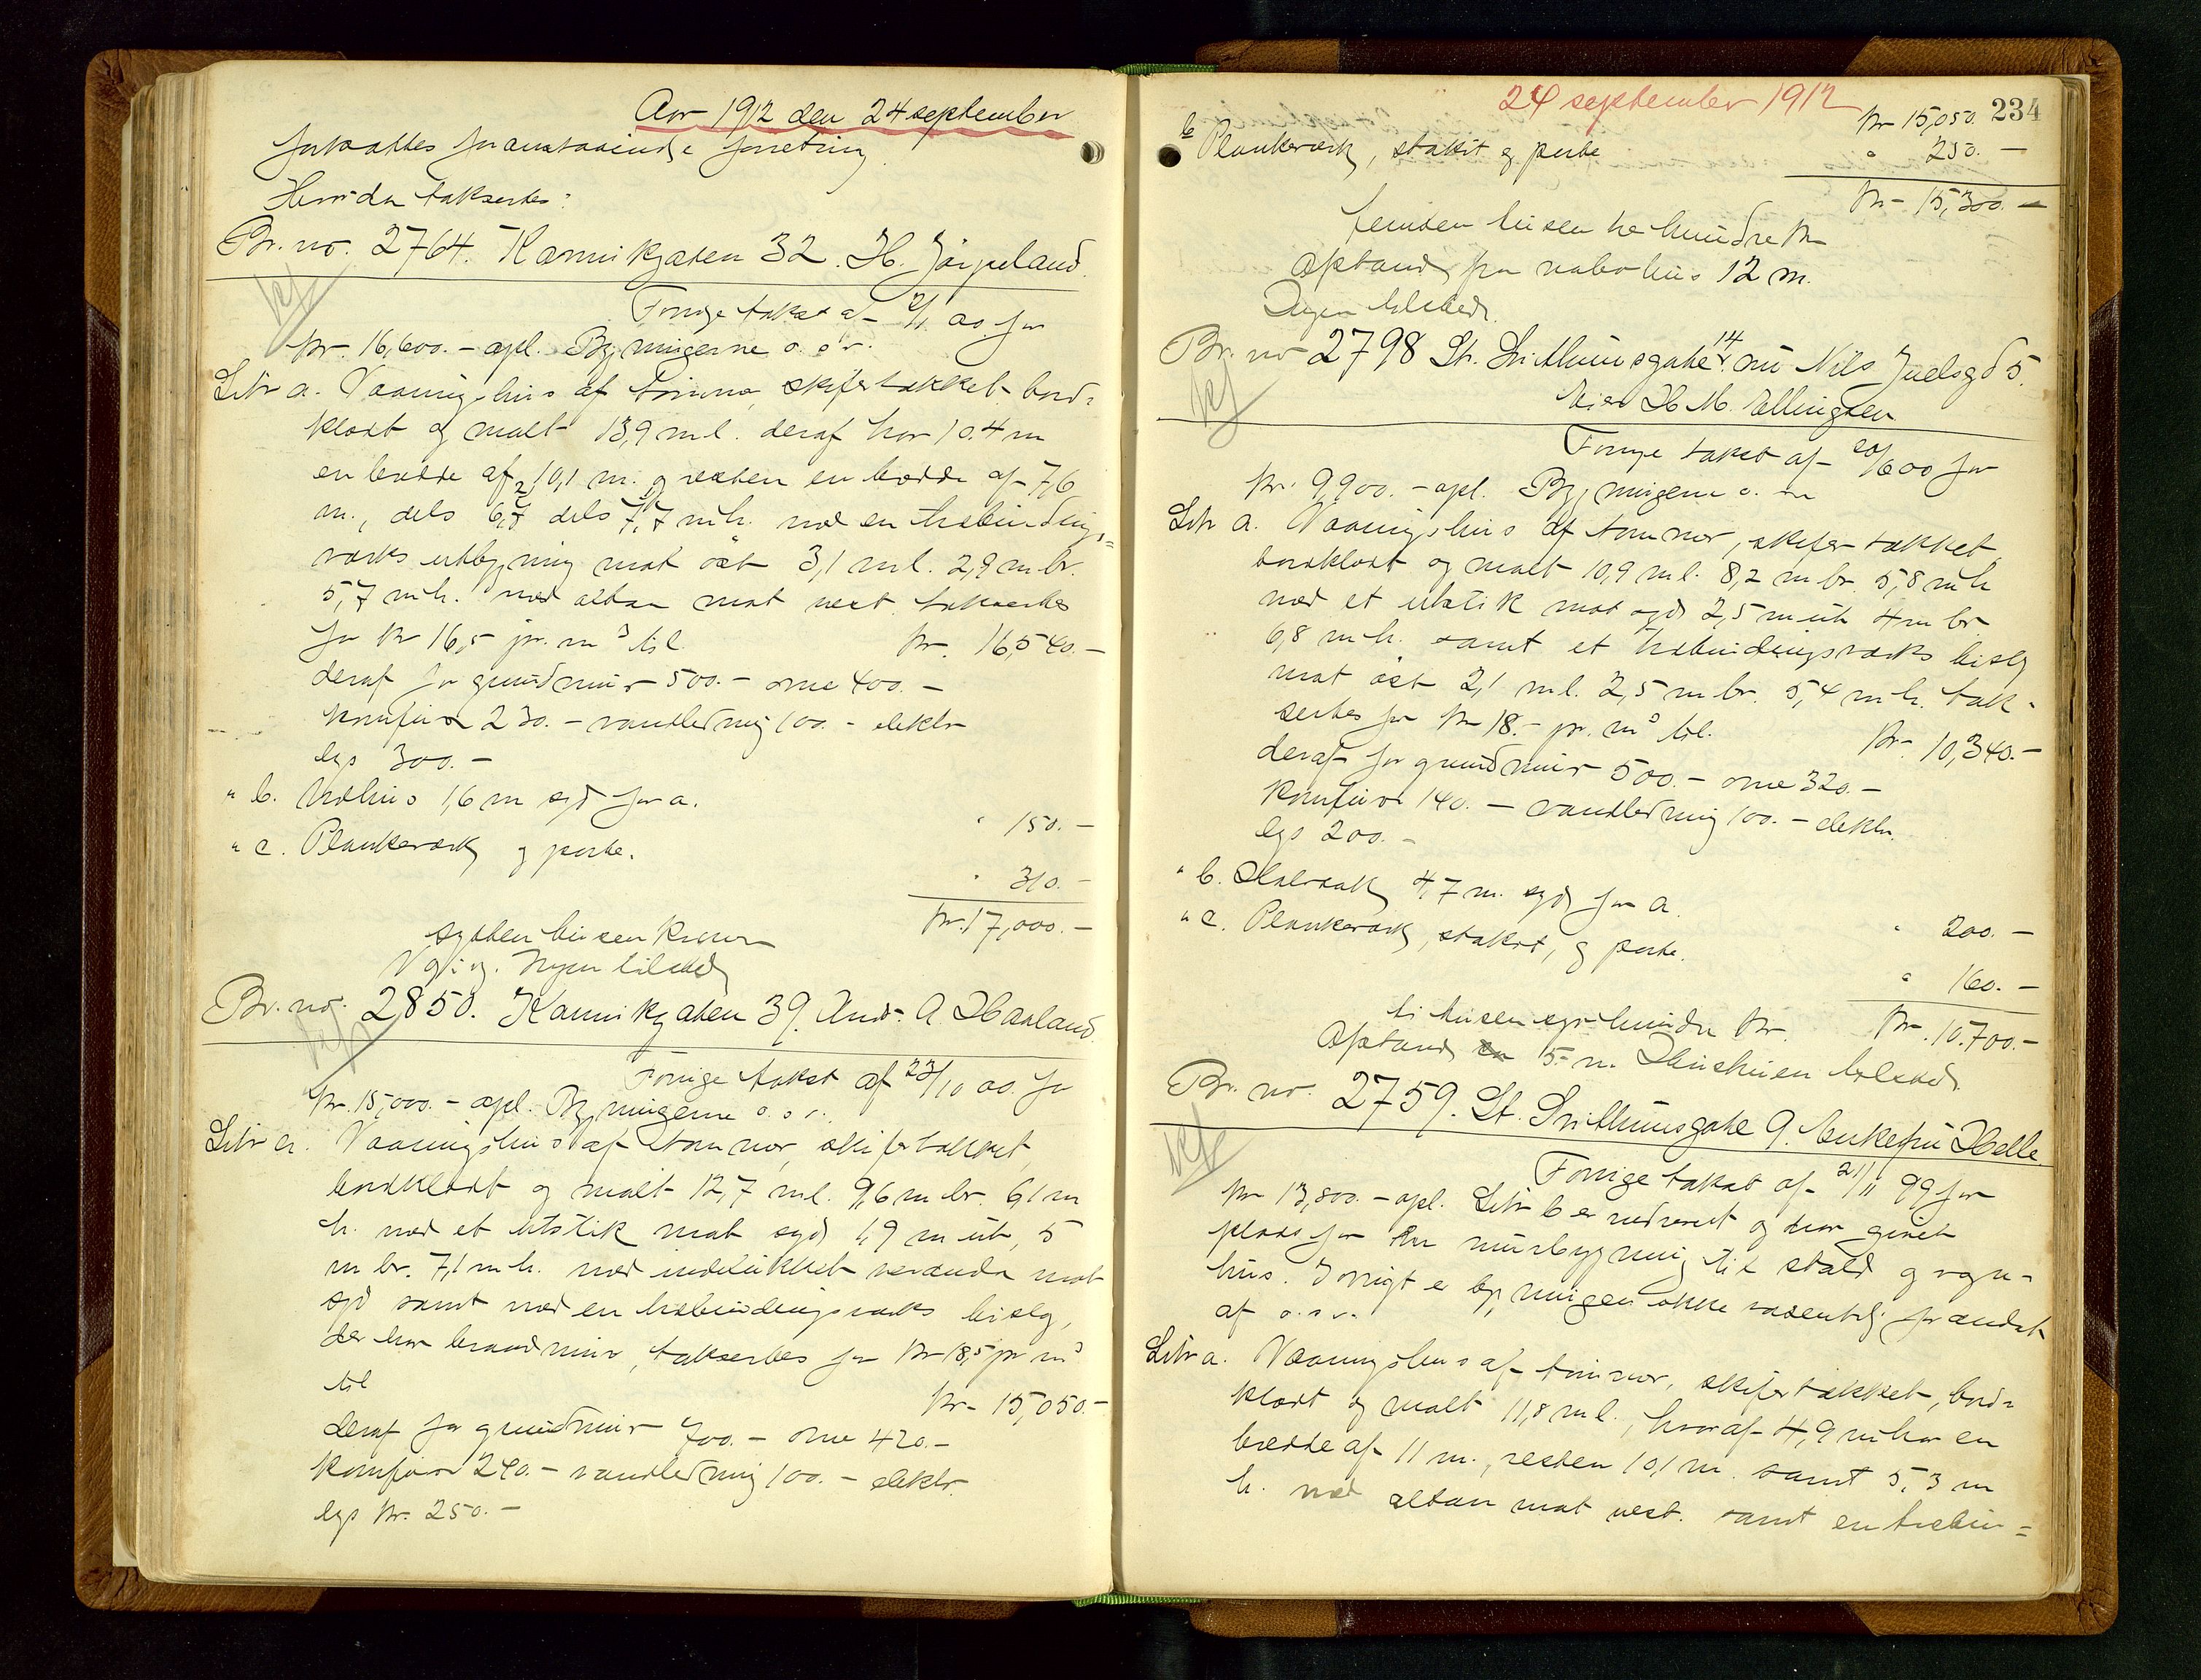 Aar 1912 den 24 september
fortsattes foranstaaende forretning.
Herunder takseertes:
Br. no. 2764. Kannikgaten 32. H. Jørpeland.
Forrige takst af 2/11 00 for
Kr. 16,600.- opl. Bygningerne o. s. v.
Litr a. Vaaningshus af tømmer, skifertækket bord-
klædt og malt 13,9 m l. deraf har 10.4 m
en bredde af 10,1 m. og resten en bredde af 7,6
m., dels 6,7 dels 7,7 m h. med en træbindings-
verks utbygning mot øst 3,1 m l. 2,9 m br.
5,7 m h. med altan mot vest takseertes
for Kr 16,5 pr. m³ til Kr. 16,540.-
deraf for grundmur 500.- ovne 400.-
komfur 230.- vandledning 100.- elektr
lys 300.-
" b. Uthus 1,6 m syd for a. " 150.-
" c. Plankeverk og porte. " 310.-
Kr. 17,000.-
sytten tusen kroner
Ingen tilstede
Br. no. 2850. Kannikgaten 39. And. A. Haaland.
Forrige takst af 23/10 00 for
Kr. 15,000.- opl. Bygningerne o. s. v.
Litr a. Vaaningshus af tømmer, skifertækket,
bordklædt og malt 12,7 m l. 9,6 m br. 6,1 m
h. med et utstik mot syd 1,9 m ut, 5
m br. 7,1 m h. med indelukket veranda mot
syd samt med en træbindingsverks bislag,
der har brandmur, takseertes for Kr 18,5 pr m³
til Kr. 15,050.-
deraf for grundmur 700.- ovne 420.-
komfur 240.- vandledning 100.- elektr.
lys Kr. 250.-
24 september 1912
234
Kr 15,050.
b Plankeverk, stakit og porte " 250.-
Kr. 15,300.-
femten tusen tre hundre Kr
Avstand fra nabohus 12 m.
Ingen tilstede.
Br. no 2798 St. Svithunsgate 14 nu Nils Juelsgd 5.
Eier H. M. Ellingsen
Forrige takst af 20/6 00 for
Kr. 9,900.- opl. Bygningerne o. s. v.
Litr a. Vaaningshus af tømmer, skifertækket,
bordklædt og malt 10,9 m l. 8,2 m br. 5,8 m h
med et utstik mot syd 2,5 m ut 4 m br
6,8 m h. samt et træbindingsverks bislag
mot øst 2,1 m l. 2,5 m br. 5,4 m h. tak-
sertes for Kr 18.- pr. m³ til. Kr. 10,340.-
deraf for grundmur 500.- ovne 320.-
komfur 140.- vandledning 100.- elektr.
lys 200.-
" b. 4,7 m. syd for a. " 200.-
" c. Plankeverk, stakit, og porte. " 160.-
Kr. 10.700.-
ti tusen syv hundre Kr.
Avstand 5 m. Hustruen tilstede.
Br. no. 2759. St. Svithunsgate 9. Enkefru Helle.
Forrige takst af 2/11 99 for
Kr 13,800.- opl. Litr b er nedrevet og har givet
plads for en murbygning til stald og vogn-
hus. Iøvrigt er bygningen ikke væsentlig forandret
af o. s. v.
Litr a. Vaaningshus af tømmer, skifertækket, bord-
klædt og malt 11,8 m l., hvoraf 4,9 m har en
bredde af 11 m., resten 10,1 m. samt 5,3 m
h. med altan mot vest. samt en træbin-